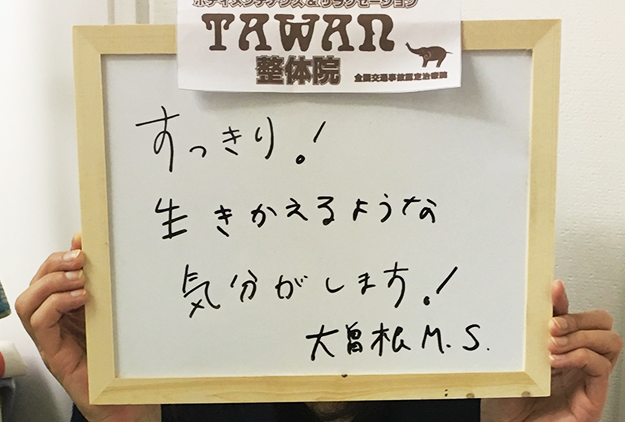 ボディメンテナンス&リラクゼーション
TAWAN
整体院
全国交通事故認定治療院
すっきり!
生きかえるような
気分がします!
大曽根 M.S.